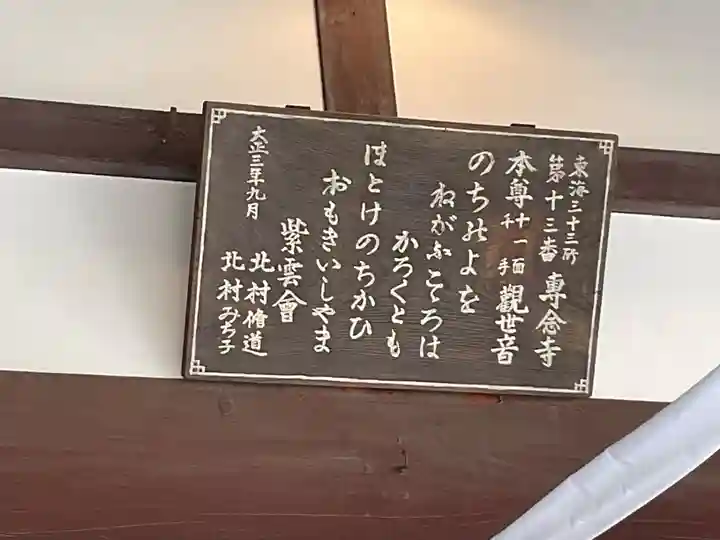 東海三十三所
第十三番 專念寺
本尊 十一面 千手 觀世音
のちのよを
ねがふこゝろは
かろくとも
ほとけのちかひ
おもきいしやま
紫雲會
北村脩道
北村みち子
大正三年九月